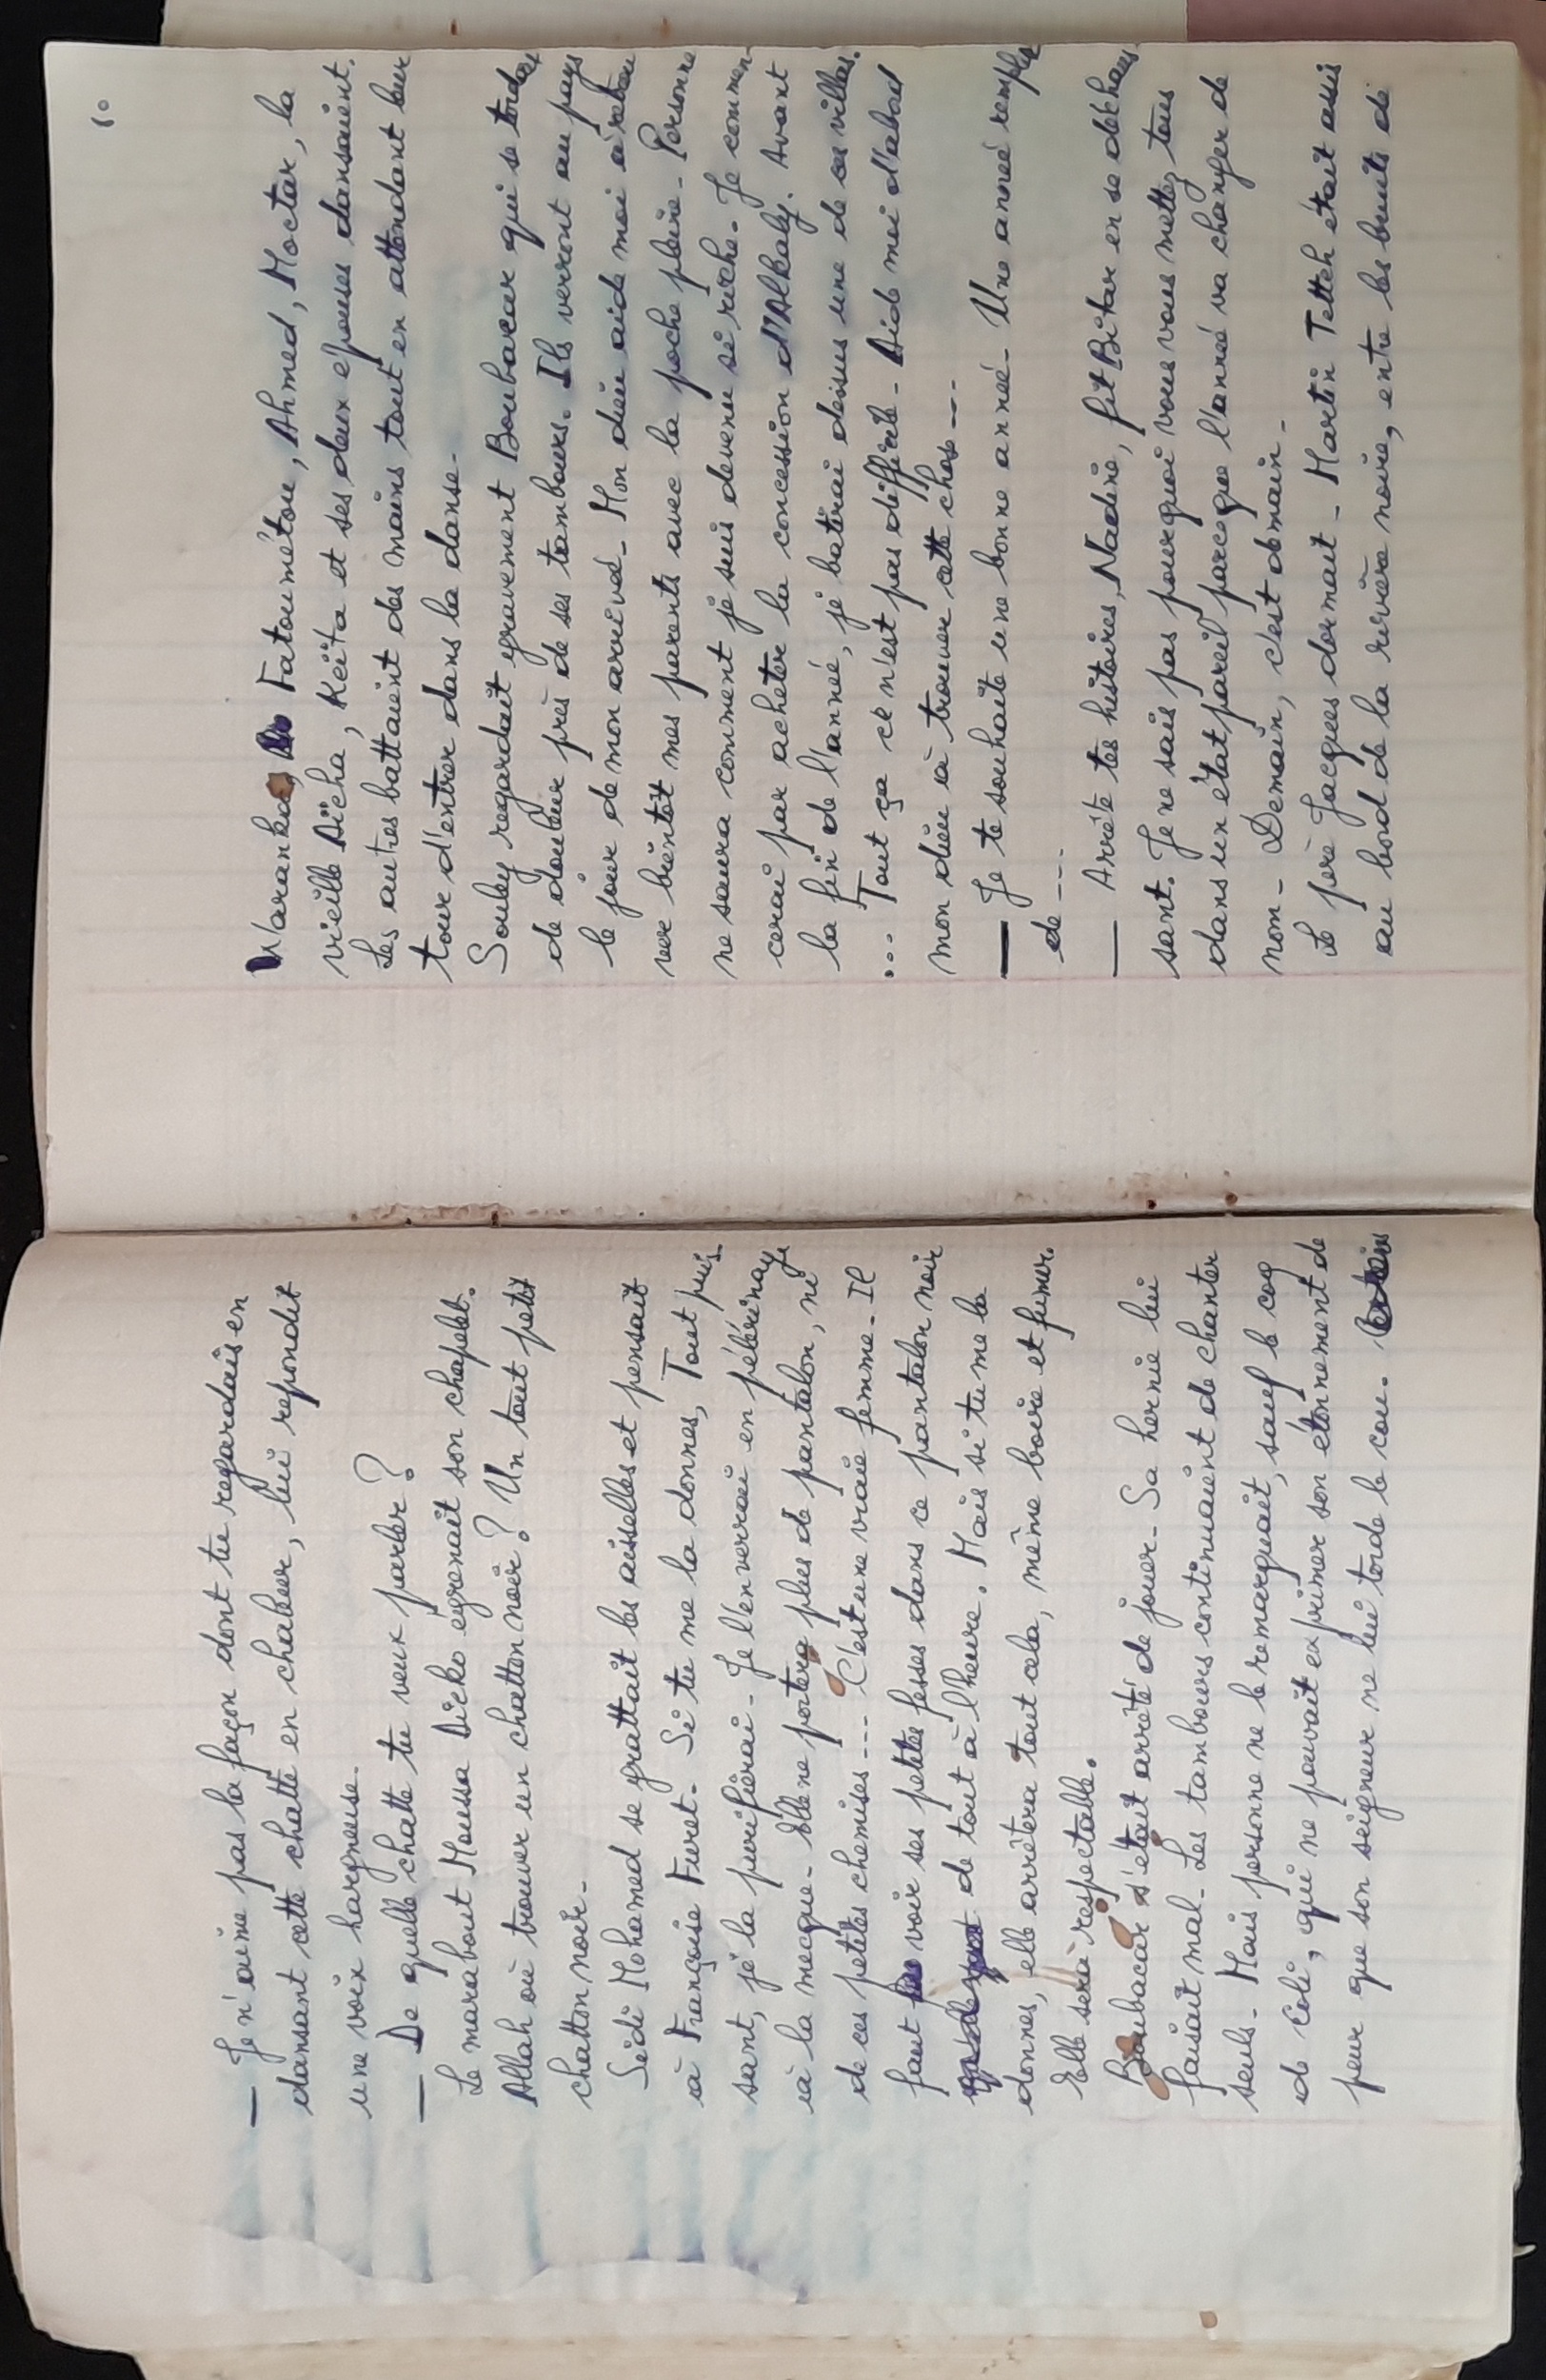 — Je n'aime pas la façon dont tu regardais en
dansant cette chatte en chaleur, lui repondit
une voix hargneuse.
— De quelle chatte tu veux parler ?
Le marabout Moussa Dicko égrenait son chapelet.
Allah où trouver un chatton noir ? Un tout petit
chatton noir.
Sidi Mohamed se grattait les aisselles et pensait
à Françoise Furet. Si tu me la donnes, Tout puis-
sant, je la purifierai. Je l'enverrai en pélérinage
à la mecque. Elle ne portera plus de pantalon, ni
de ces petites chemises... C'est une vraie femme. Il
faut voir ses petites fesses dans ce pantalon noir
de tout à l'heure. Mais si tu me la
donnes, elle arrêtera tout cela, même boire et fumer.
Elle sera respectable.
Boubacar s'était arrêté de jouer. Sa hernie lui
faisait mal. Les tambours continuaient de chanter
seuls. Mais personne ne le remarquait, sauf le coq
de Coli, qui ne pouvait exprimer son étonnement de
peur que son seigneur ne lui torde le cou.
10
Waranka, Fatoumétou, Ahmed, Moctar, la
vieille Aïcha, Keïta et ses deux epouses dansaient.
Les autres battaient des mains tout en attendant leur
tour d'entrer dans la danse.
Souley regardait gravement Boubacar qui se tordait
de douleur près de ses tambours. Ils verront au pays
le jour de mon arrivée. Mon dieu aide moi à retrou
ver bientôt mes parents avec la poche pleine. Personne
ne saura comment je suis devenu si riche. Je commen-
cerai par acheter la concession d'Alkaly. Avant
la fin de l'année, je batirai dessus une de ces villas.
... Tout ça ce n'est pas difficile. Aide moi d'abord
mon dieu à trouver cette chose...
— Je te souhaite une bonne année. Une année remplie
de...
— Arrête tes histoires, Nadine, fit Bitar en se déchaus-
sant. Je ne sais pas pourquoi vous vous mettez tous
dans un état pareil parce que l'année va changer de
nom. Demain, c'est demain.
Le père Jacques dormait. Martin Tetteh était assis
au bord de la rivière noire, entre les bruits de